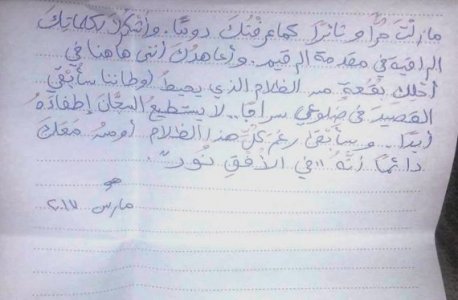 ما زلتَ حُرًّا و ثائرًا كما عرفْتُكَ دومًا. وأشكُرُ كلماتِكَ
الراقية في مقدمة الرقيم. وأعاهدُكَ أنني ها هنا في
أحلك بُقْعَة من الظلام الذي يحيطُ أوطاننا سأُبْقي
القصيدَ في ضلوعي سراجًا.. لا يستطيعُ السجَّانُ إطفاءَهُ
أبدًا... و سأبْقى رغمَ كُلِّ هذا الظلام أومنُ مَعَكَ
دائمًا أنَّهُ "في الأفْقِ نُورٌ".
مارس ٢٠١٧